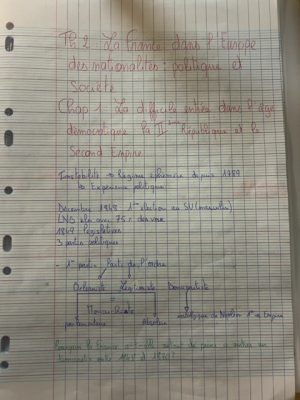 Th 2 La France dans l'Europe
des nationalités : politique et
Société
Chap 1 La difficile entrée dans l'âge
démocratique la IIème République et le
Second Empire
Instabilité → Régime éphémère depuis 1789
→ Expérience politique
Décembre 1848 1ère élection au SU (masculin)
LNB élu avec 75%
1849 : législatives
3 partis politiques
- 1er parti : Parti de l'ordre
Orléaniste Légitimiste Bonapartiste
=
Monarchiste
Absolue
1er Empire
1848 et 1870 ?